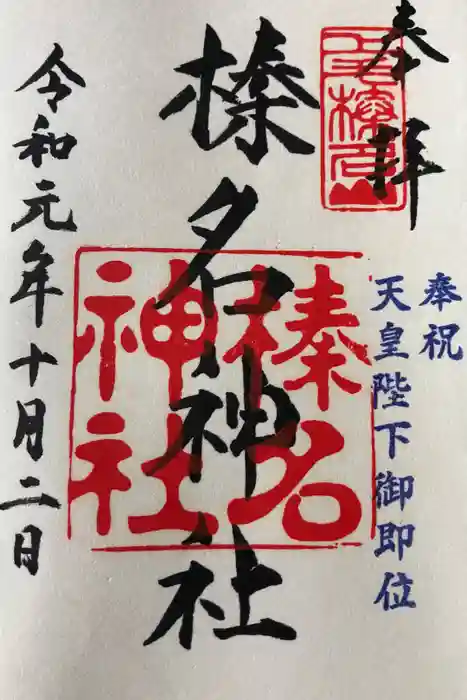 奉拝
上毛榛名山
奉祝
天皇陛下御即位
榛名神社
榛名神社
令和元年十月二日